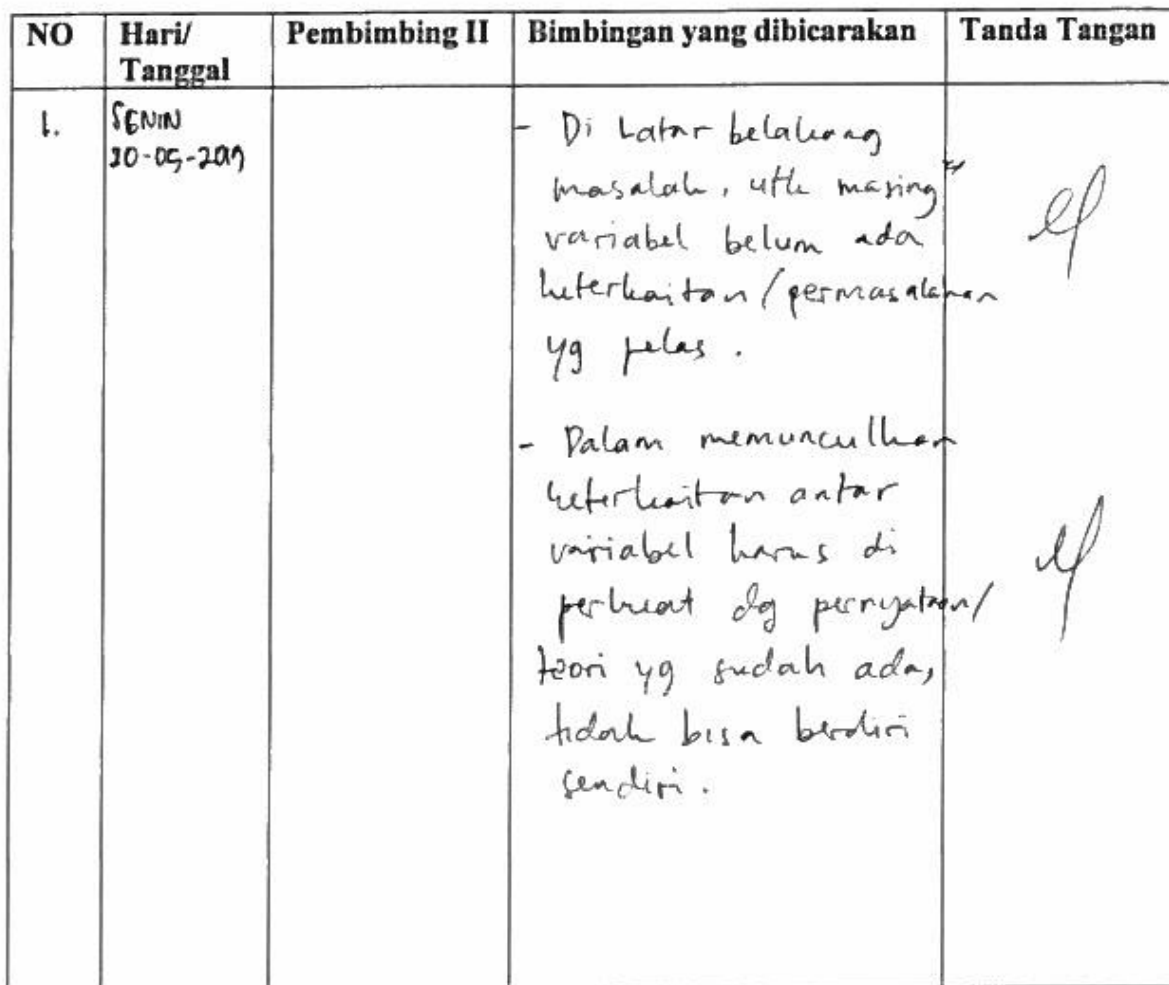 NO Hari/ Pembimbing II Bimbingan yang dibicarakan Tanda Tangan
Tanggal
1. SENIN
20-05-2019
- Di Latar belakang
masalah, utk masing"
variabel belum ada
keterkaitan/permasalahan
yg jelas.
- Dalam memunculkan
keterkaitan antar
variabel harus di
perkuat dg pernyataan/
teori yg sudah ada,
tidak bisa berdiri
sendiri.